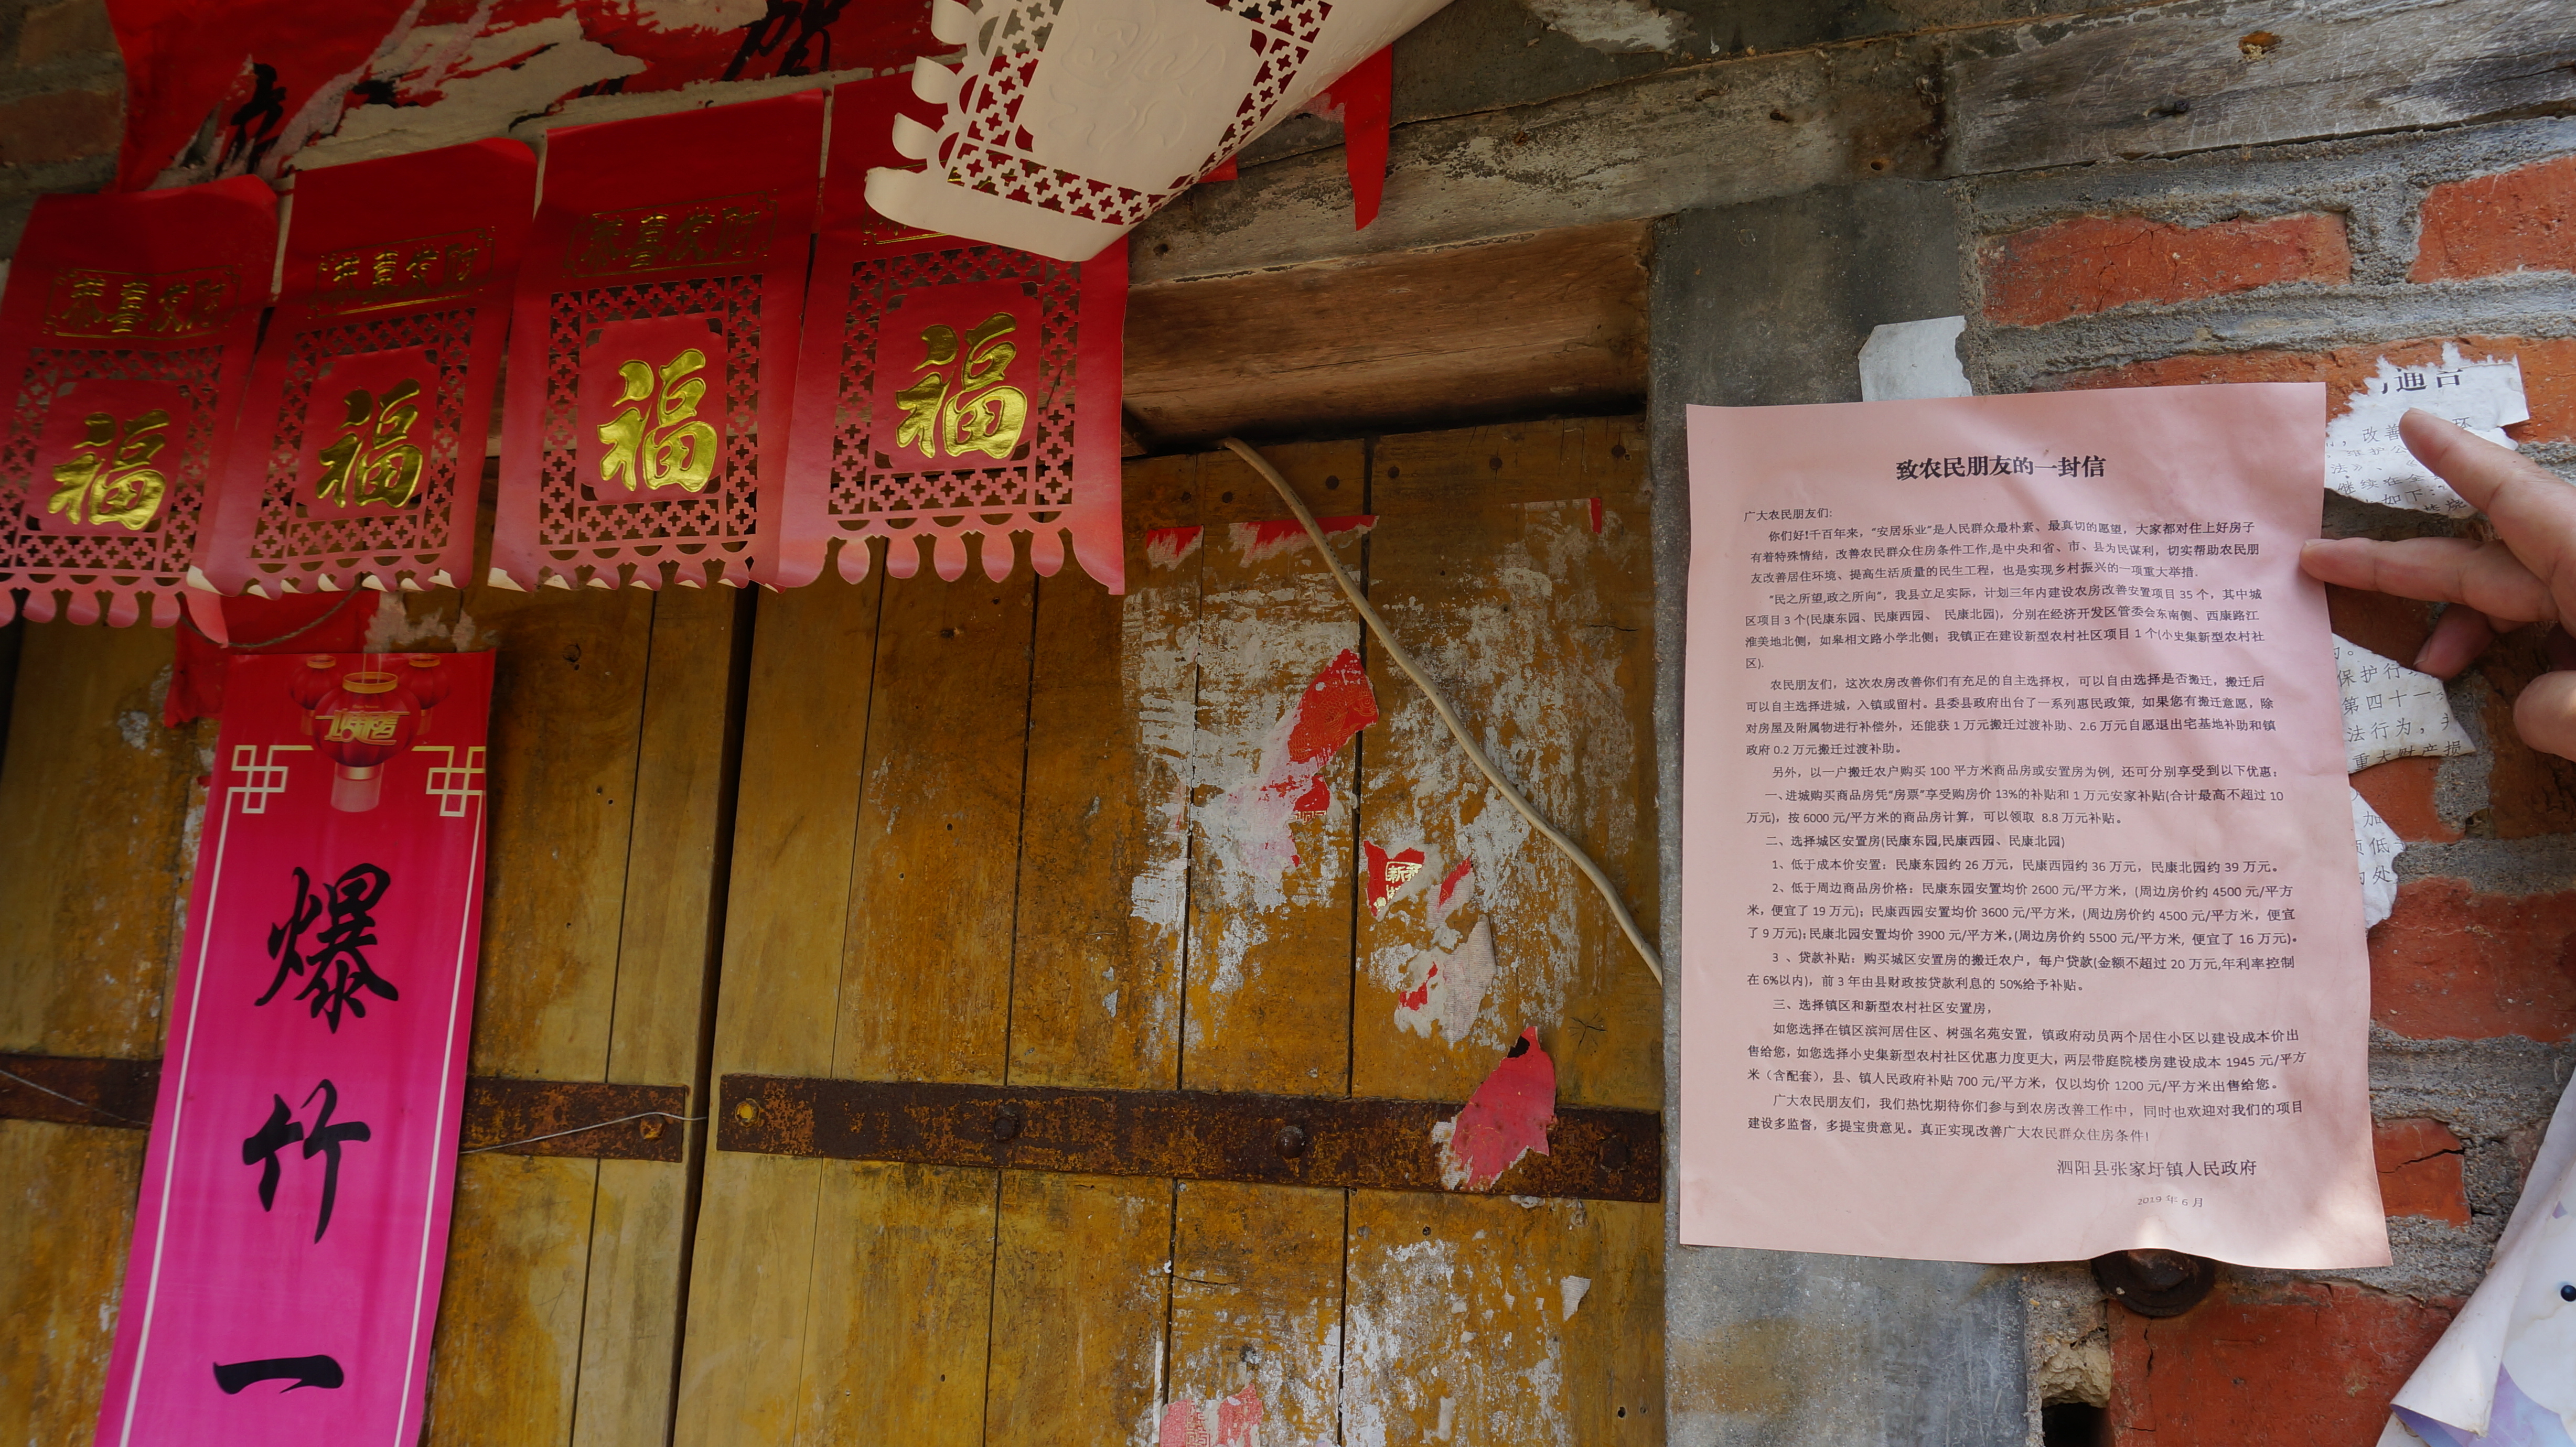 贺
恭喜发财
福
恭喜发财
福
恭喜发财
福
福
爆
竹
一
新
致农民朋友的一封信
广大农民朋友们:
你们好!千百年来，“安居乐业”是人民群众最朴素、最真切的愿望，大家都对住上好房子
有着特殊情结，改善农民群众住房条件工作,是中央和省、市、县为民谋利，切实帮助农民朋
友改善居住环境、提高生活质量的民生工程，也是实现乡村振兴的一项重大举措.
“民之所望,政之所向”，我县立足实际，计划三年内建设农房改善安置项目 35 个，其中城
区项目 3 个(民康东园、民康西园、 民康北园)，分别在经济开发区管委会东南侧、西康路江
淮美地北侧，如皋相文路小学北侧；我镇正在建设新型农村社区项目 1 个(小史集新型农村社
区).
农民朋友们，这次农房改善你们有充足的自主选择权，可以自由选择是否搬迁，搬迁后
可以自主选择进城，入镇或留村。县委县政府出台了一系列惠民政策, 如果您有搬迁意愿，除
对房屋及附属物进行补偿外，还能获 1 万元搬迁过渡补助、2.6 万元自愿退出宅基地补助和镇
政府 0.2 万元搬迁过渡补助。
另外，以一户搬迁农户购买 100 平方米商品房或安置房为例，还可分别享受到以下优惠；
一、进城购买商品房凭“房票”享受购房价 13%的补贴和 1 万元安家补贴(合计最高不超过 10
万元)，按 6000 元/平方米的商品房计算，可以领取 8.8 万元补贴。
二、选择城区安置房(民康东园,民康西园、民康北园)
1、低于成本价安置：民康东园约 26 万元，民康西园约 36 万元，民康北园约 39 万元。
2、低于周边商品房价格：民康东园安置均价 2600 元/平方米，(周边房价约 4500 元/平方
米，便宜了 19 万元)；民康西园安置均价 3600 元/平方米，(周边房价约 4500 元/平方米，便宜
了 9 万元)；民康北园安置均价 3900 元/平方米，(周边房价约 5500 元/平方米, 便宜了 16 万元)。
3 、贷款补贴：购买城区安置房的搬迁农户，每户贷款(金额不超过 20 万元,年利率控制
在 6%以内)，前 3 年由县财政按贷款利息的 50%给予补贴。
三、选择镇区和新型农村社区安置房,
如您选择在镇区滨河居住区、树强名苑安置，镇政府动员两个居住小区以建设成本价出
售给您, 如您选择小史集新型农村社区优惠力度更大，两层带庭院楼房建设成本 1945 元/平方
米（含配套），县、镇人民政府补贴 700 元/平方米，仅以均价 1200 元/平方米出售给您。
广大农民朋友们，我们热忱期待你们参与到农房改善工作中，同时也欢迎对我们的项目
建设多监督，多提宝贵意见。真正实现改善广大农民群众住房条件!
泗阳县张家圩镇人民政府
2019 年 6 月
通告
，改善
法》、
继续在全
如下：
保护行
第四十一
法行为，
重大财产损
加
低
处